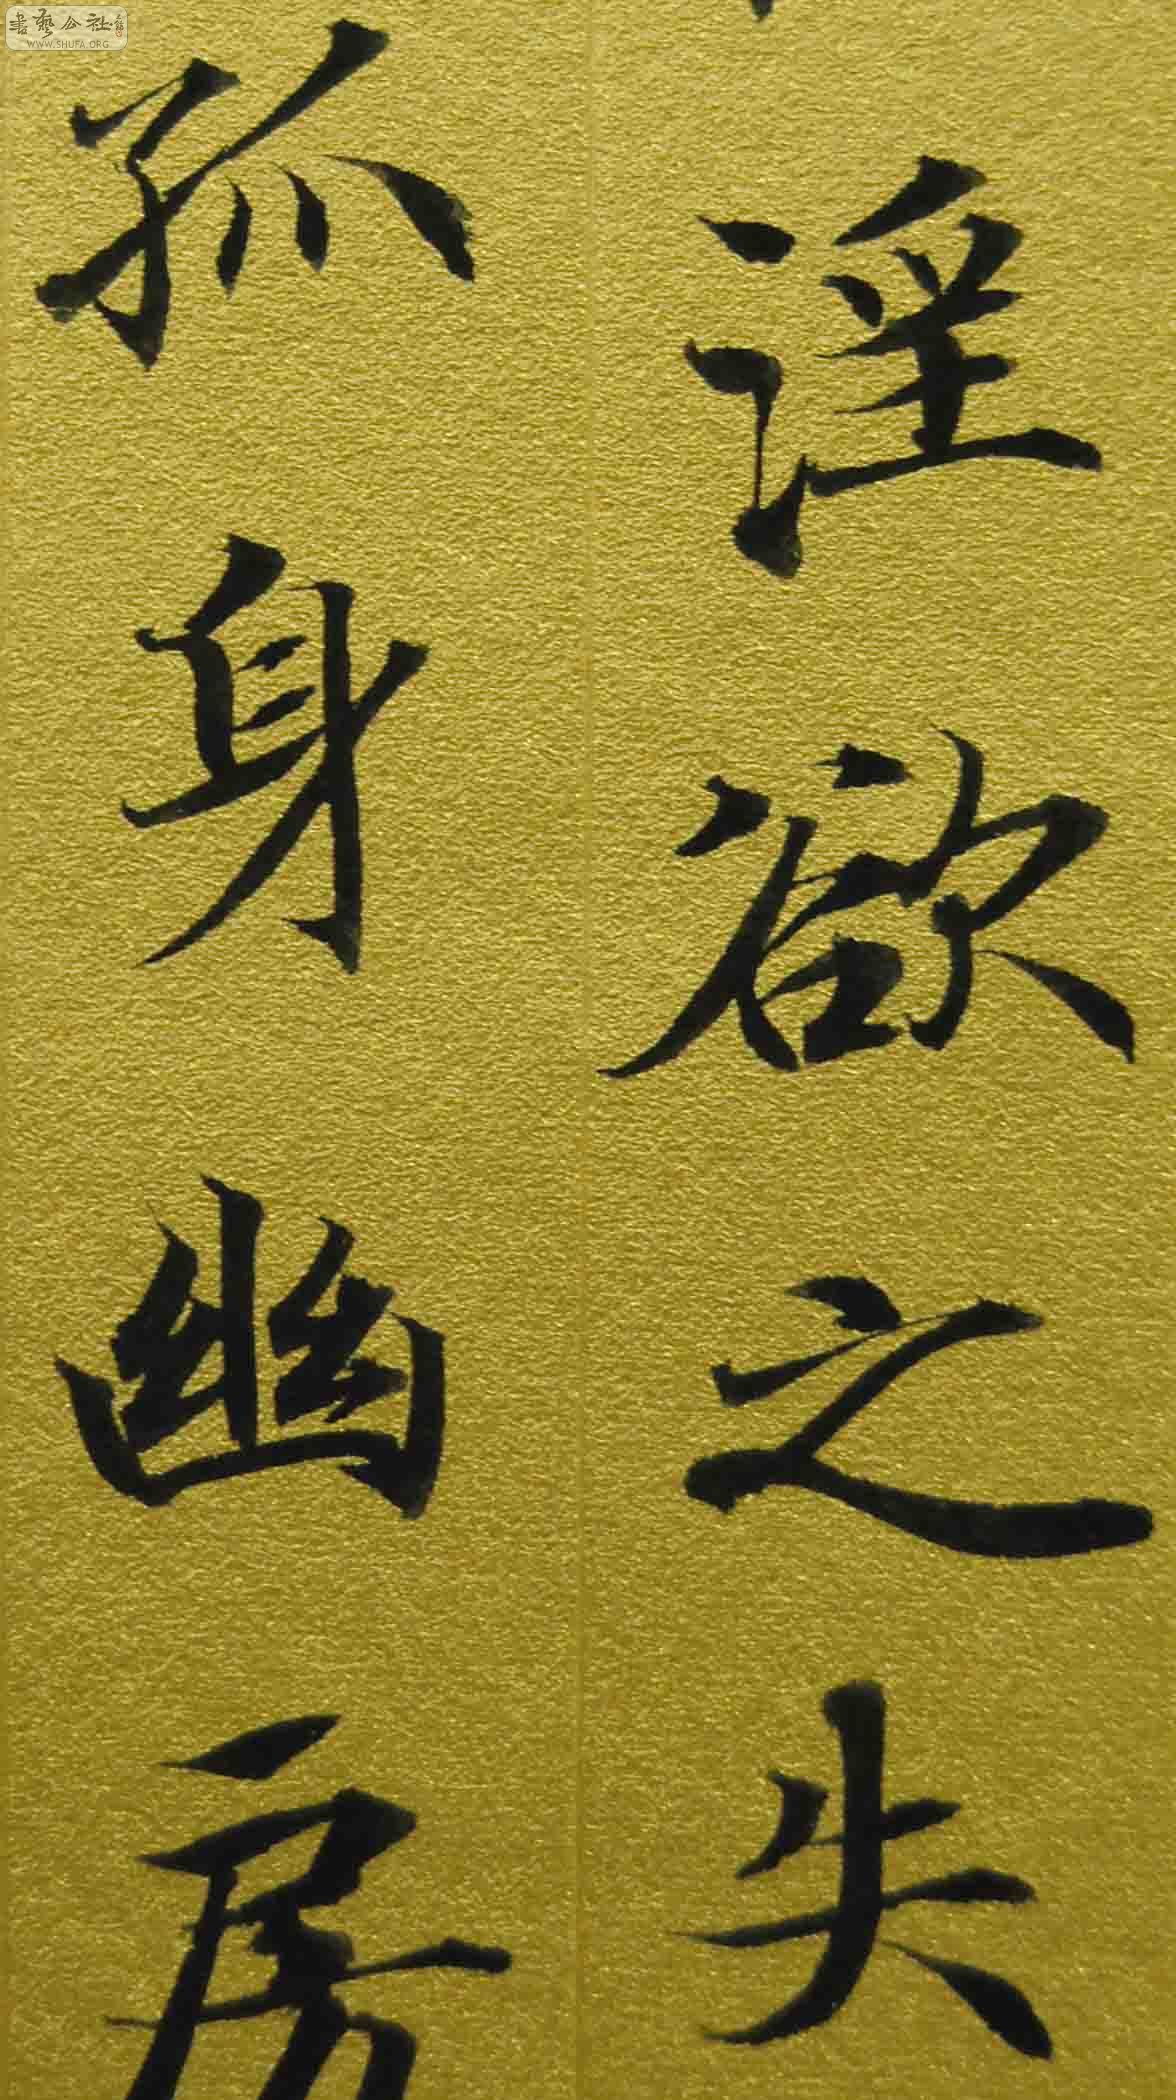 書藝公社
WWW.SHUFA.ORG
淫欲之失
孤身幽房